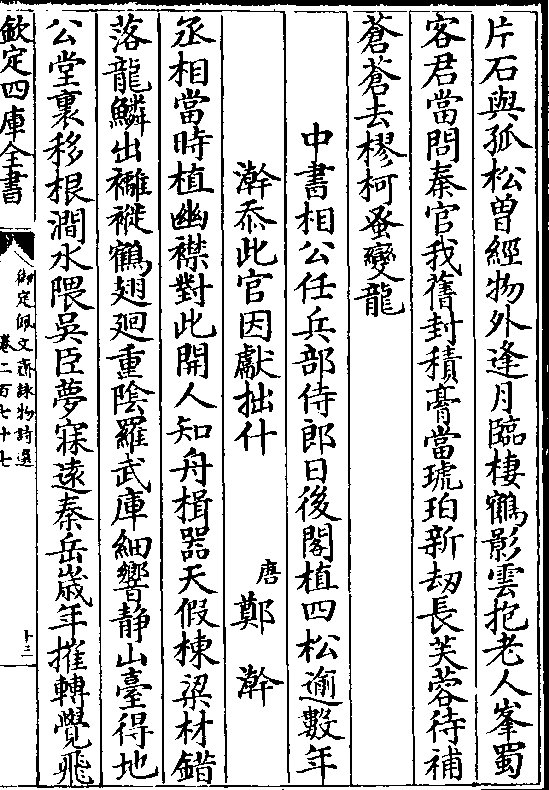 片石與孤松曽經物外逢月臨棲鶴影雲抱老人峯蜀
客君當問秦官我舊封積膏當琥珀新刼長芙蓉待補
蒼蒼去樛柯蚤變龍
中書相公任兵部侍郎日後閣植四松逾數年
澣忝此官因獻拙什
唐 鄭澣
丞相當時植幽襟對此開人知舟楫器天假棟梁材錯
落龍鱗出襹褷鶴翅廻重陰羅武庫細響静山臺得地
公堂裏移根澗水隈吳臣夢寐逺秦岳嵗年摧轉覺飛
欽定四庫全書
御定佩文齋詠物詩選
卷二百七十七
十三